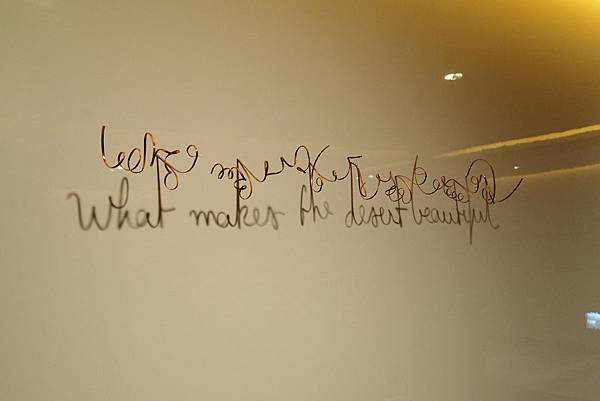 What makes the desert beautiful